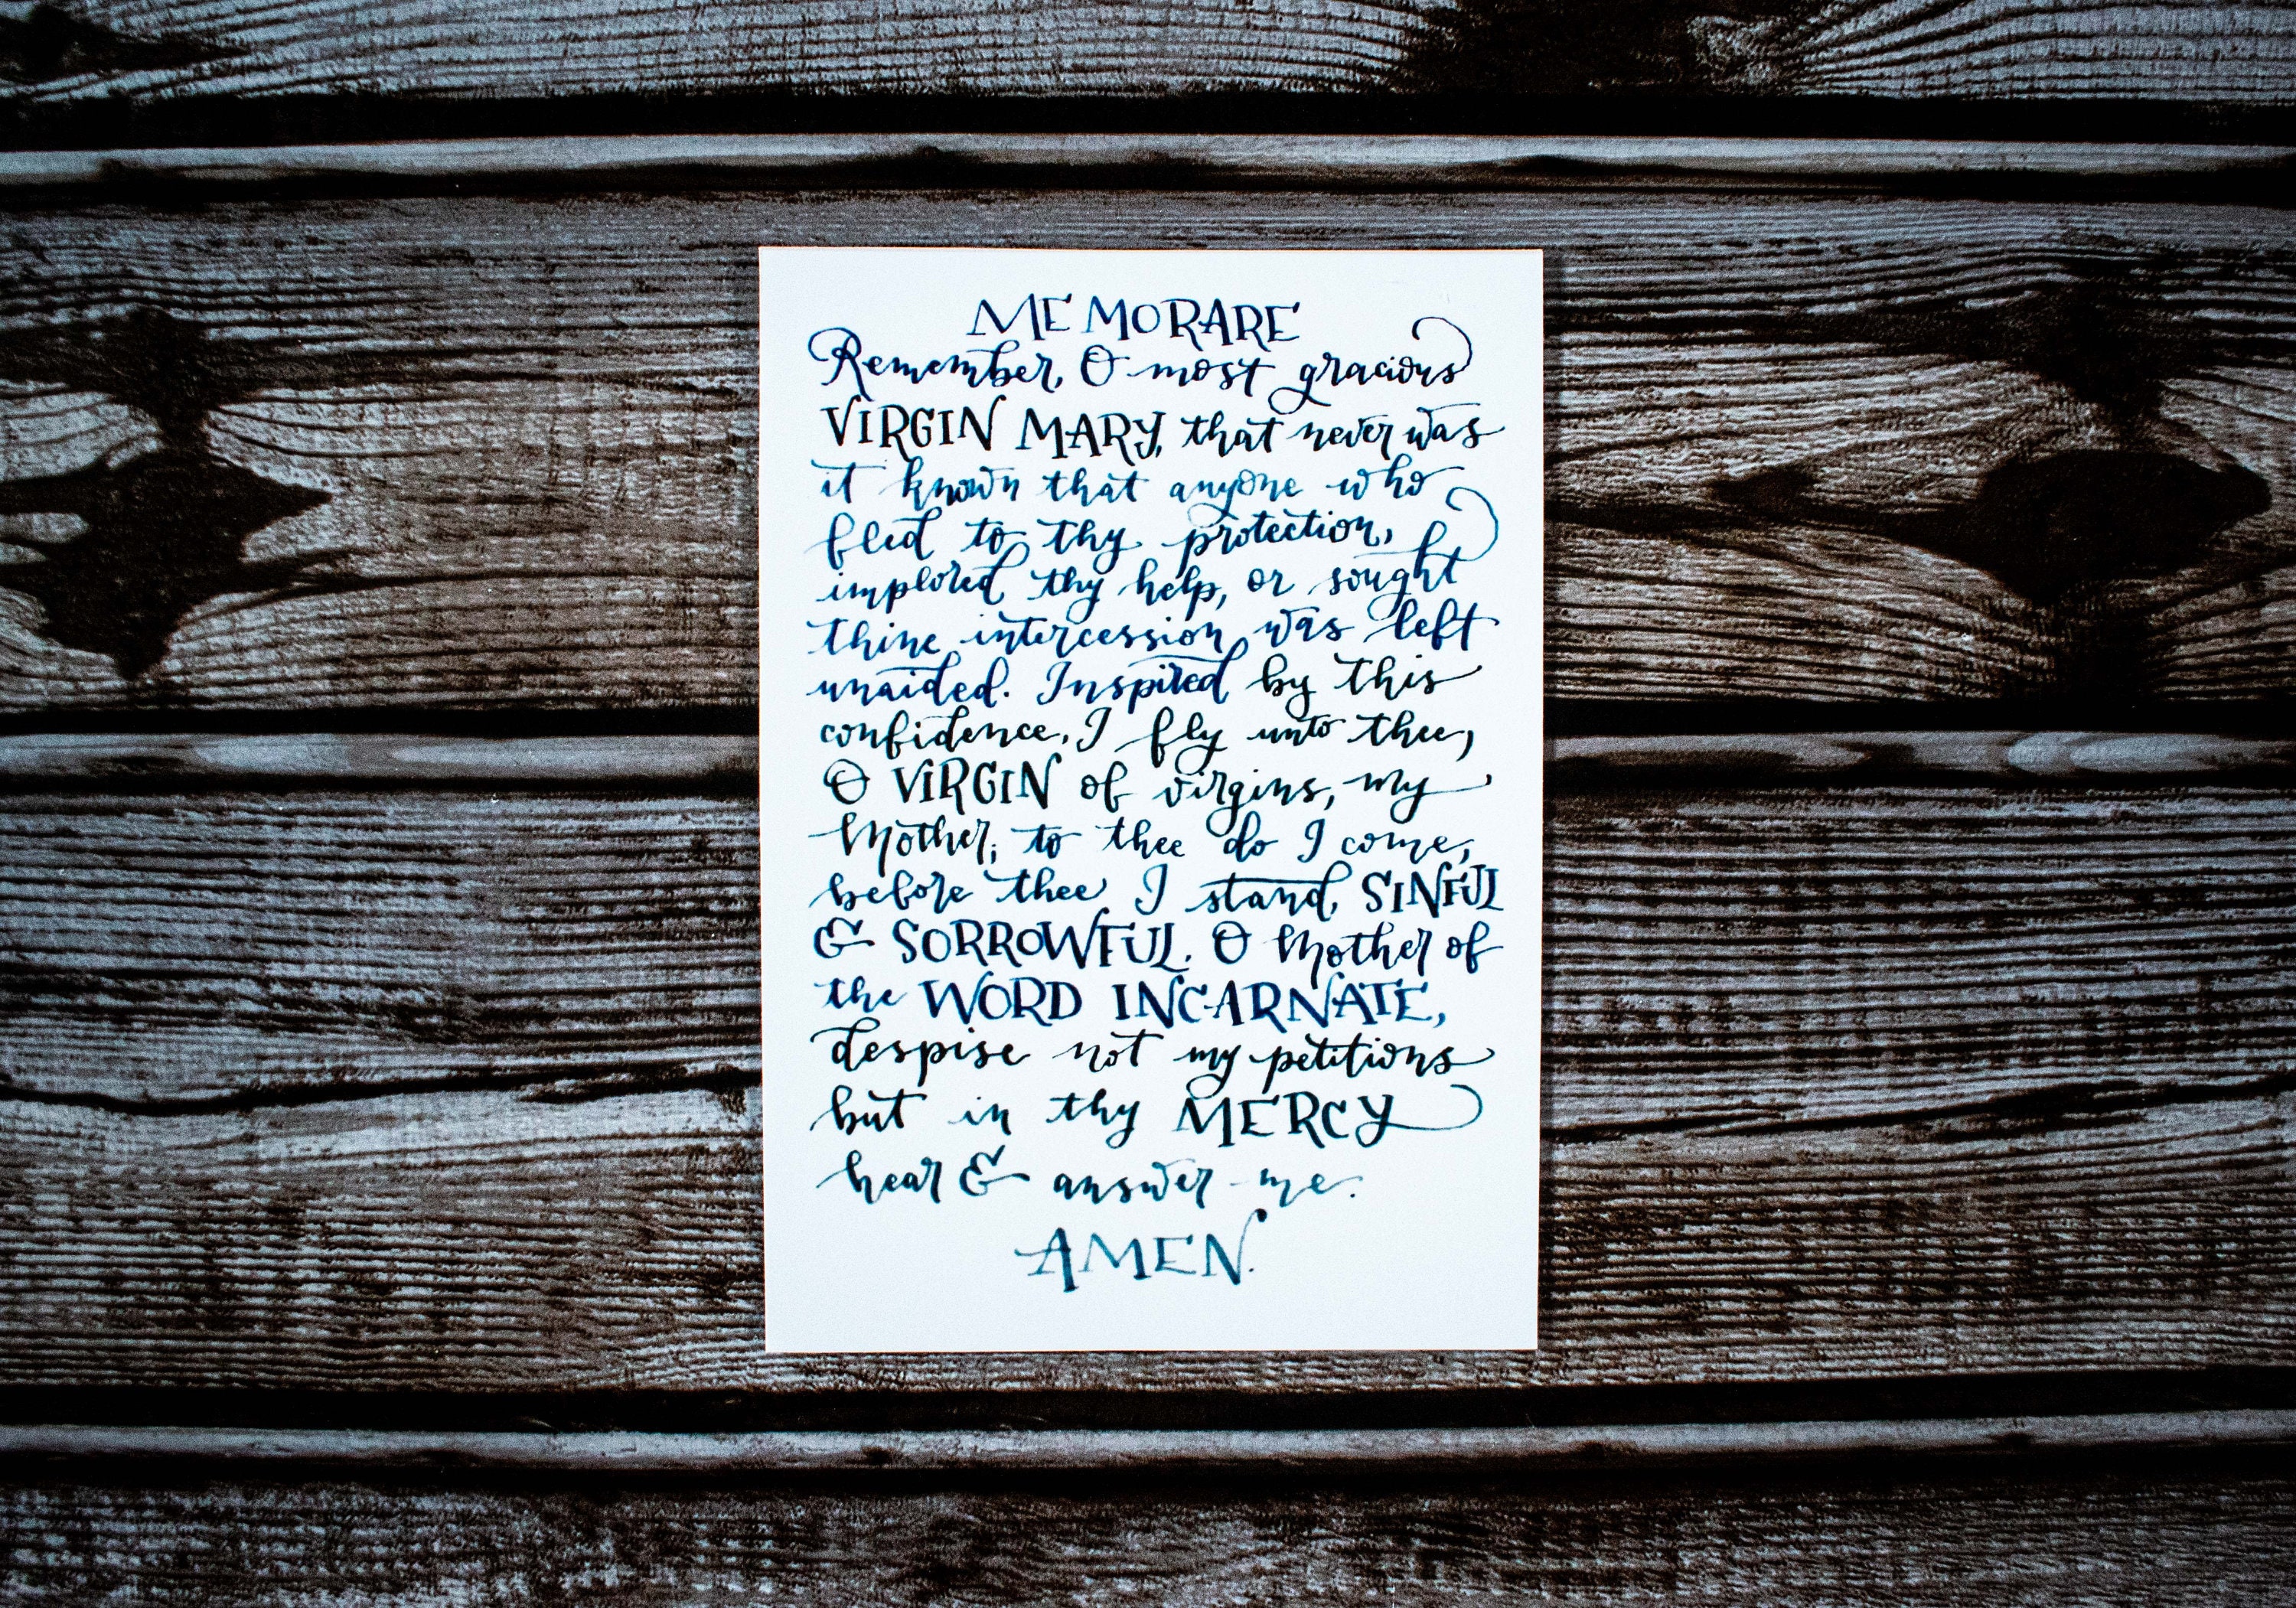 MEMORARE
Remember, O most gracious
VIRGIN MARY, that never was
it known that anyone who
fled to thy protection,
implored thy help, or sought
thine intercession was left
unaided. Inspired by this
confidence, I fly unto thee,
O VIRGIN of virgins, my
Mother; to thee do I come,
before thee I stand, SINFUL
& SORROWFUL. O Mother of
the WORD INCARNATE,
despise not my petitions
but in thy MERCY
hear & answer me.
AMEN.